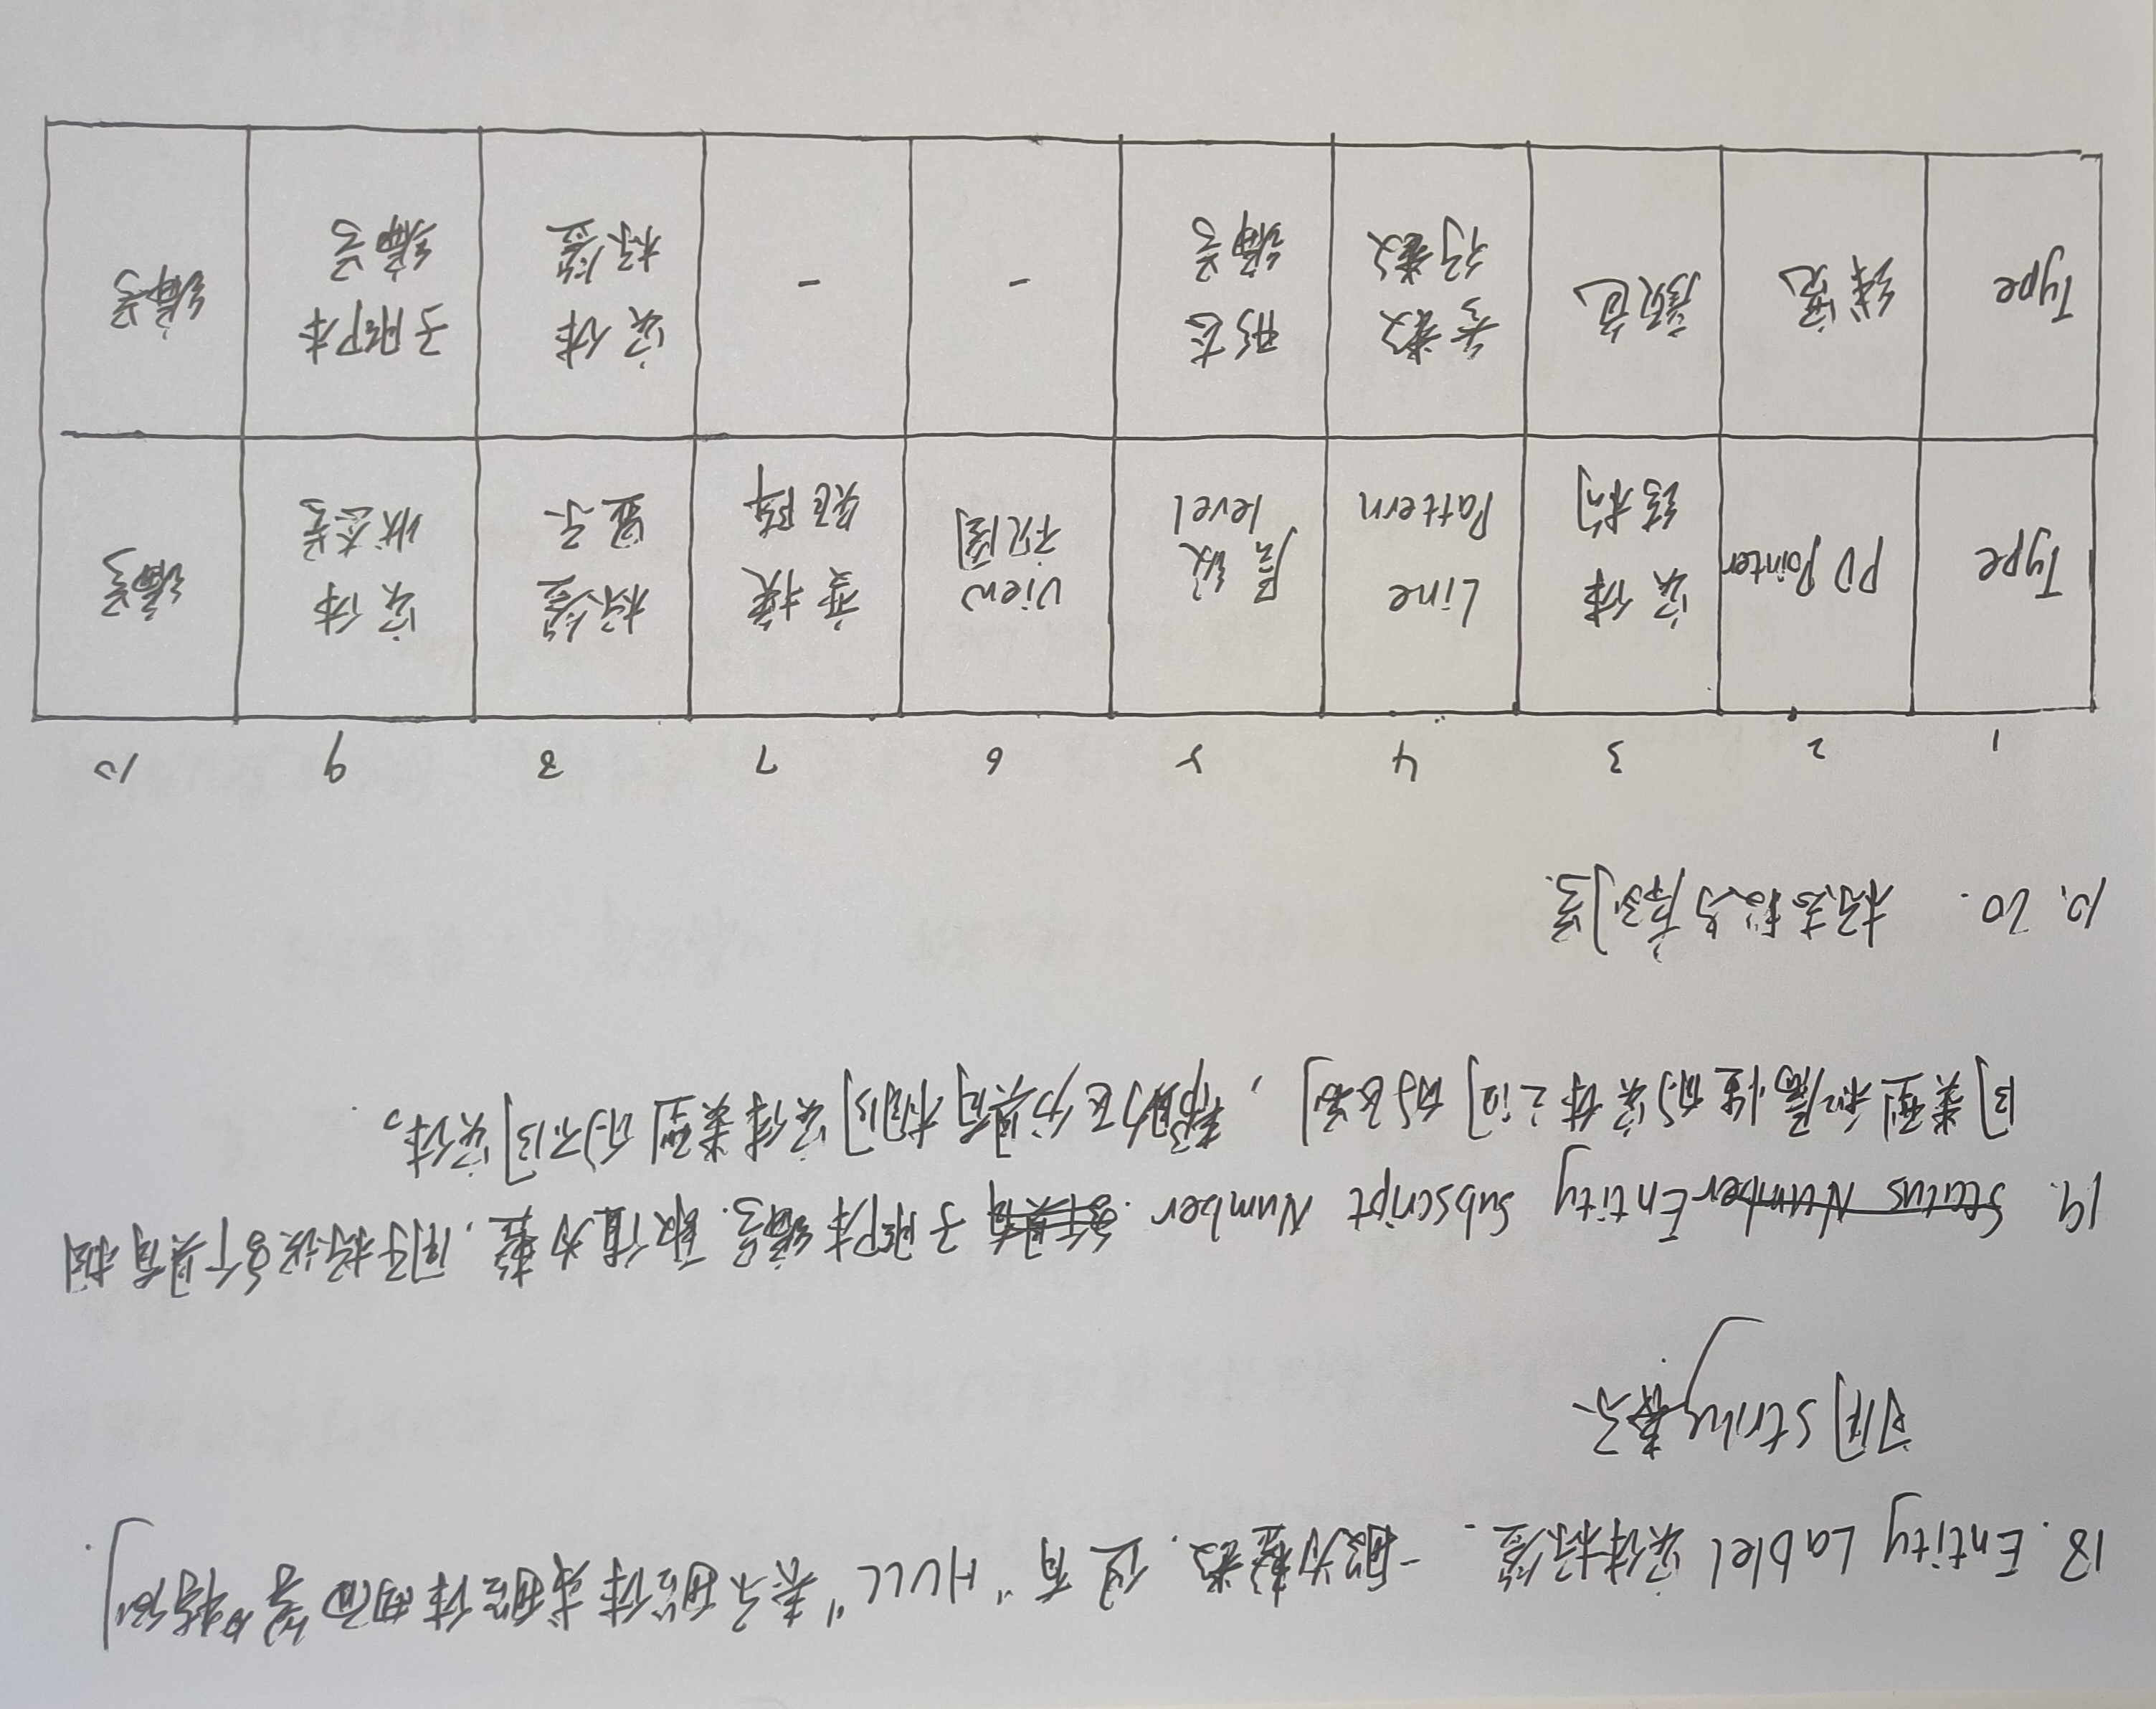 18. Entity Lablel 实体标签. 一般为整数. 但有"HULL"表示船体或船体曲面等特例.
可用string表示
19. Status Number Entity Subscript Number. 多个具有 子脚本编号. 取值为整, 用于标识多个具有相
同类型和属性的实体之间的区别, 帮助区分具有相同实体类型的不同实体。
10. 20. 标志段与序列号.
1 2 3 4 5 6 7 8 9 10
Type PD Pointer 实体 Line 层级 view 变换 标签 实体 编号
结构 Pattern level 视图 矩阵 显示 状态号
Type 线宽 颜色 参数 形态 - - 实体 子脚本 编号
行数 编号 标签 编号